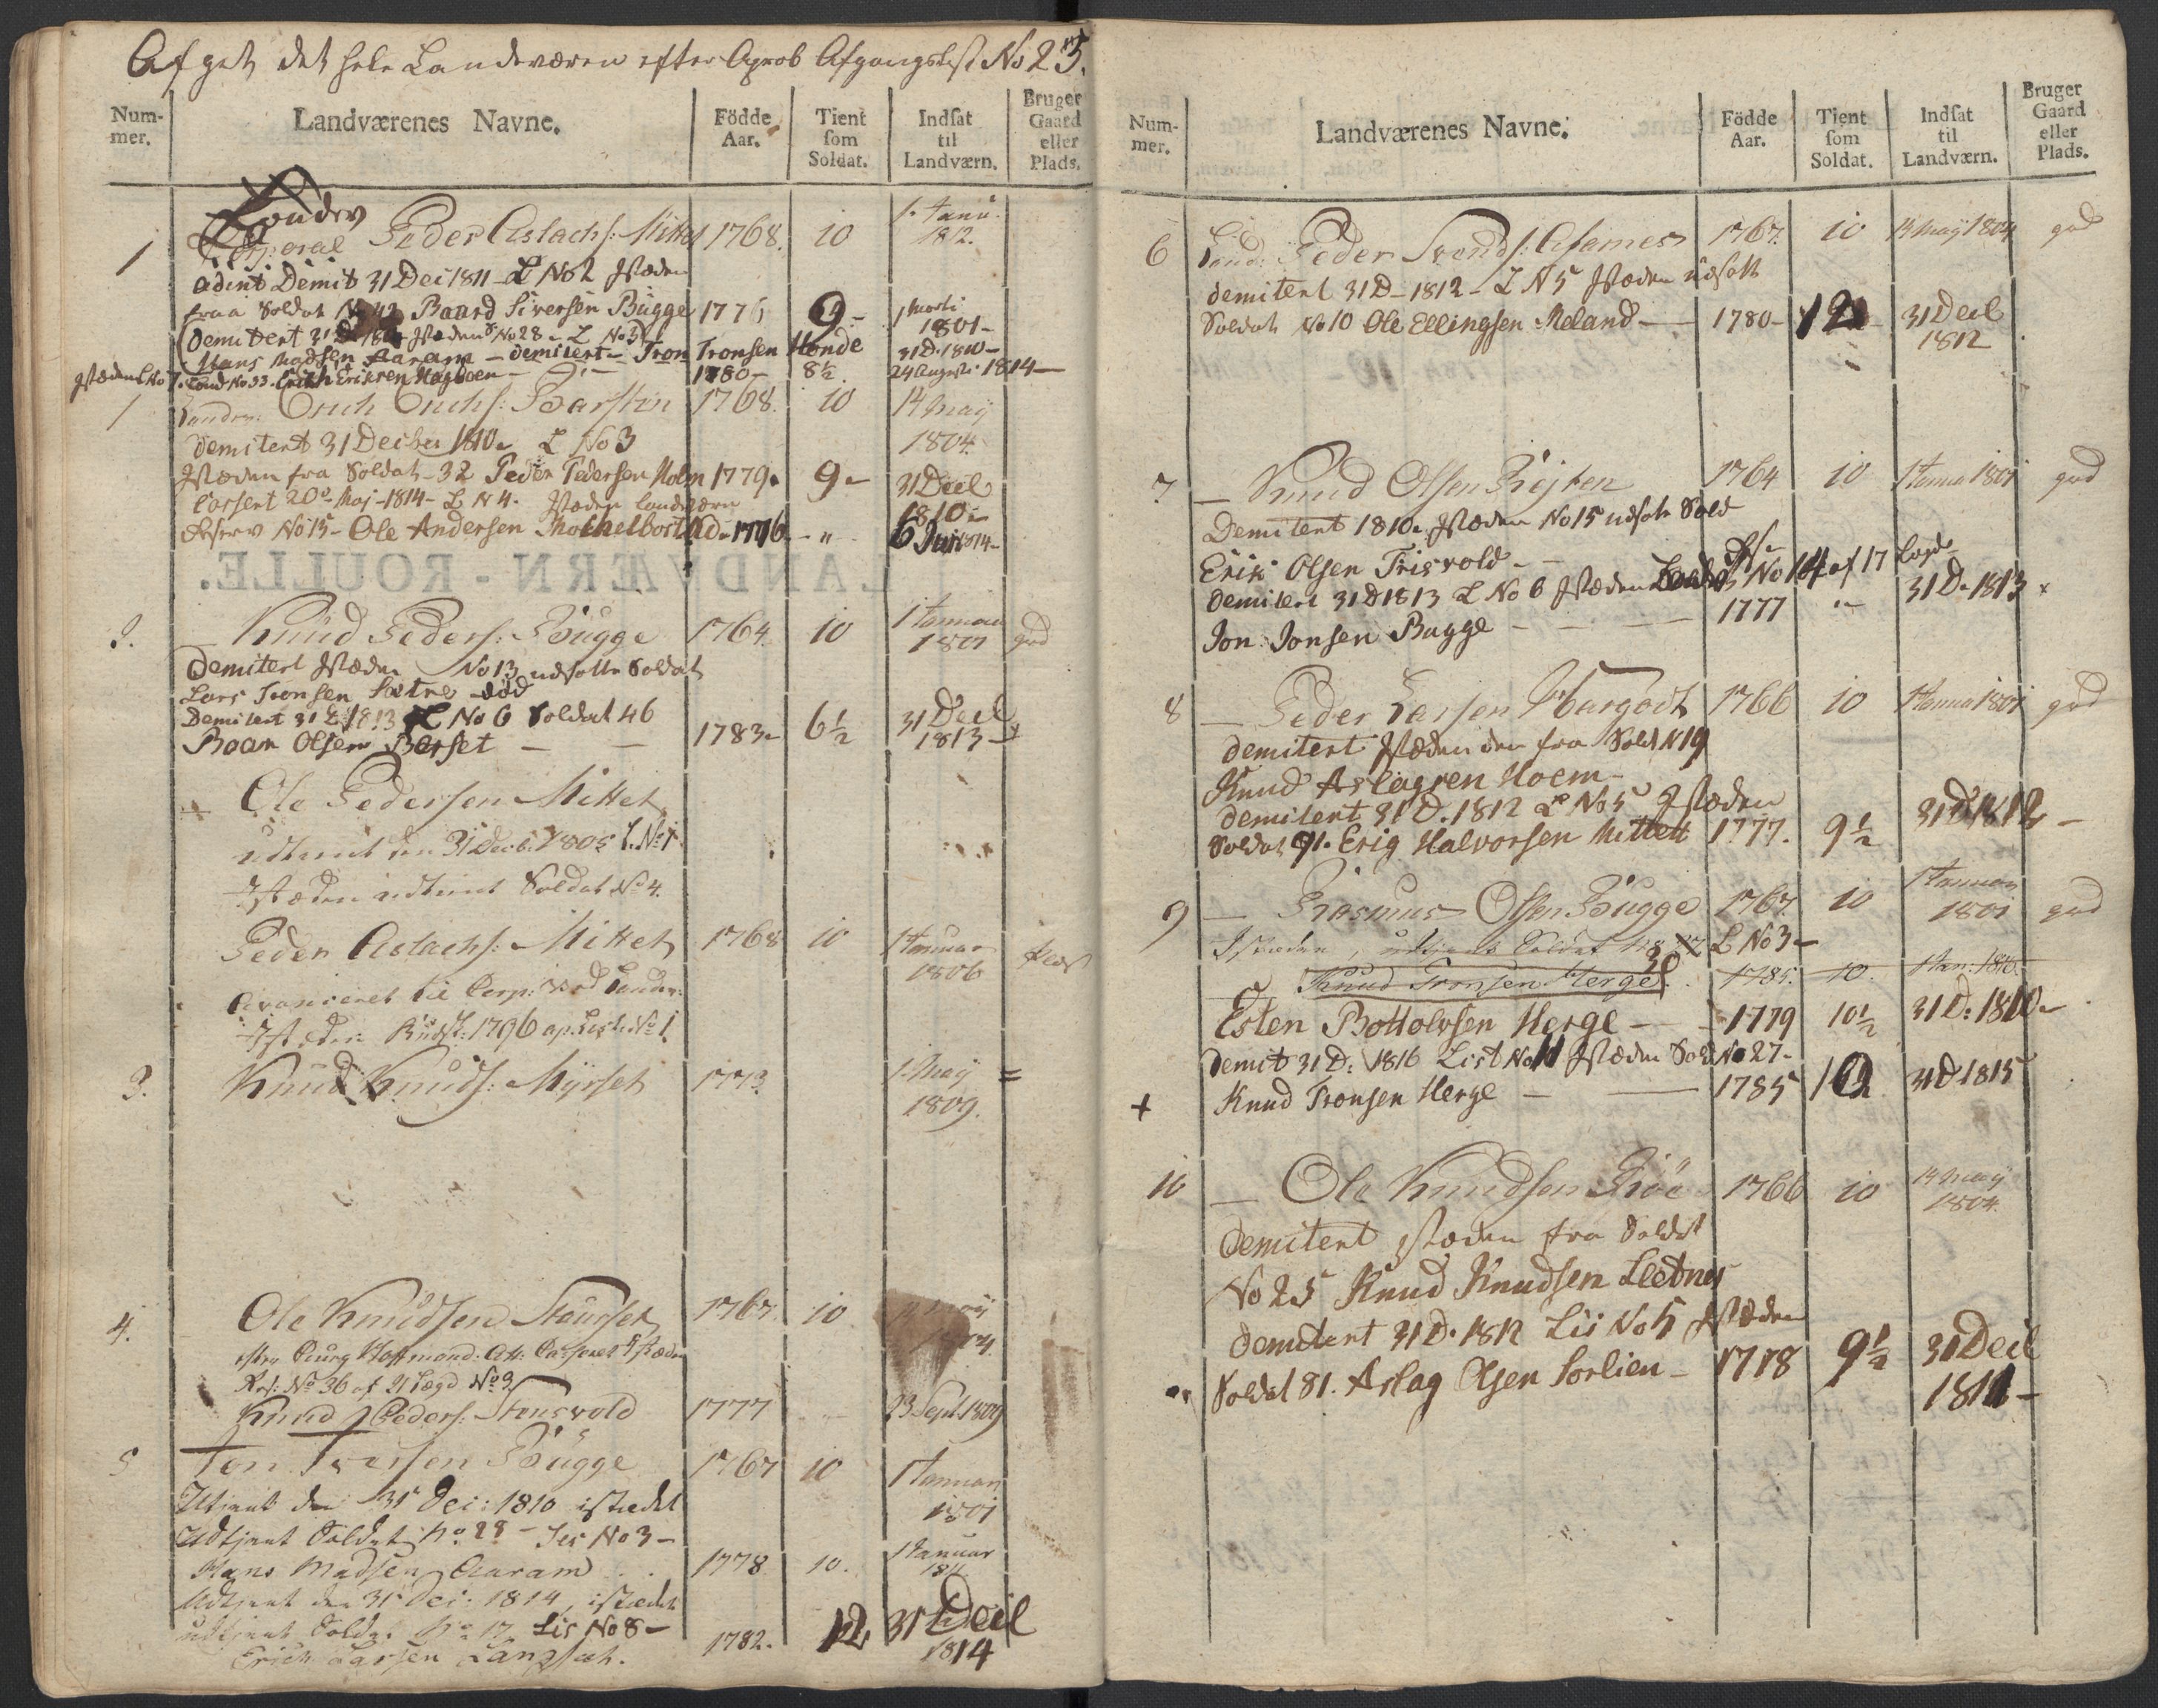 Afgik det hele Landeværen efter Aprob Afgangslist No 25.
Num-mer. Landværenes Navne. Födde Aar. Tient som Soldat. Indsat til Landværn. Bruger Gaard eller Plads.
1 Corporal Peder Aslachs: Mittet 1768. 10 1. Janu. 1812.
Demit 31 Dec 1811 L No 2 Isteden
fraa Soldat No 42 Baard Siversen Bugge 1776 9- 1 Marti 1801-
Demitert 31 D Isteden No 28 - L No 3
Hans Madsen Aaram - demitert - Tron Tronsen Hende 31 D. 1810-
Isteden L No 7. Land No 33. Erich Ericksen Hagboen 1780- 8½ 24 Augusti 1814-
1 Landv. Erich Erichs: Barsten 1768. 10 14 Maij 1804.
demitert 31 December 1810. L No 3
Isteden fra Soldat - 32 Peder Pedersen Holm 1779. 9- 31 Decb 1810-
Cassert 20de Maj - 1814 - L N 4. Isteden landværn
Reserv No 15 - Ole Andersen Mochelbostad - 1776. - " 6 Juni 1814-
LANDVÆRN-ROULLE.
2. - Knud Peders: Bugge 1764. 10 1 Januari 1801 gud
Demitert Isteden No 13 udsatte Soldat
Lars Tronsen Sætre - död
Demitert 31 D 1813 L No 6 Soldat 46
Roar Olsen Berset - - 1783- 6½ 31 Decb 1813-
- Ole Pedersen Mittet
udtient den 31 Decb: 1805 L. No 1
Isteden udtient Soldat No 4.
Peder Aslachs: Mittet 1768 10 1 Januar 1806
Avanceret til Corp: ved Landv:
Isteden Rudst: 1796 ap. Liste No 1.
3. Knud Knuds: Myrset 1773. 1. Maij 1809. =
4. Ole Knudsen Staurset 1767. 10.
efter Att: Casseret Isteden
Res: No 36 af 21 Lægd No 2
Knud Peders: Stensvold 1777 - 23 Sept 1809
5 Jon Iversen Bugge 1767 10 1 Januari 1801
Utjent den 31 Dec: 1810 istedet
Udtjent Soldat No 28 - Lis No 3 -
Hans Madsen Aaram 1778 10. 1 Januar 1811.
Udtjent den 31 Dec: 1814, istedet
udtjent Soldat No 17 Lis No 8 -
Erich Larsen Langsæt. 1782. 12 31 Decb 1814
Num-mer. Landværenes Navne. Födde Aar. Tient som Soldat. Indsat til Landværn. Bruger Gaard eller Plads.
6 Land: Peder Svends: Asames 1767. 10 14 Maij 1804 gud
demitert 31 D - 1812 - L N 5 Isteden udsatt
Soldat No 10 Ole Ellingsen Meland - 1780- 12 - 31 Decb 1812
7 - Knud Olsen Rejten 1764 10 1 Janua 1801 gud
Demitert 1810. Isteden No 15 udsatt Sold
Erik Olsen Trisvold -
Demitert 31 D 1813 L No 6 Isteden No 14 af 17 Lægd
Jon Jonsen Bugge - - 1777 " - 31 D. 1813
8 - Peder Larsen 1766 10 1 Janua 1801 gud
demitert Isteden den fra Sold N 19
Knud Aslagsen Hoem -
demitert 31 D. 1812 L No 5 Isteden
Soldat 91. Erig Halvorsen Mittett 1777. 9½ 31 D 1812 -
9 - Rasmus Olsen Bugge 1767. 10 1 Januari 1801 gud
Isteden, udtjent Soldat No 27 L No 3 -
Knud Tronsen Herge 1785. 10. 1 Jan: 1810.
Esten Bottolvsen Herge - 1779 10½ 31 D: 1810-
Demit 31 D: 1816 List No 11 Isteden Sold No 27-
+ Knud Tronsen Herge - 1785 12 31 D 1815
10 - Ole Knudsen Röe 1766 10 14 Maij 1804.
Demitert Isteden fra Soldat
No 25 Knud Knudsen Sletnes
Demitert 31 D. 1812 Lis No 5 Isteden
Soldat 81. Aslag Olsen Sorlien - 1778 9½ 31 Decb 1811-